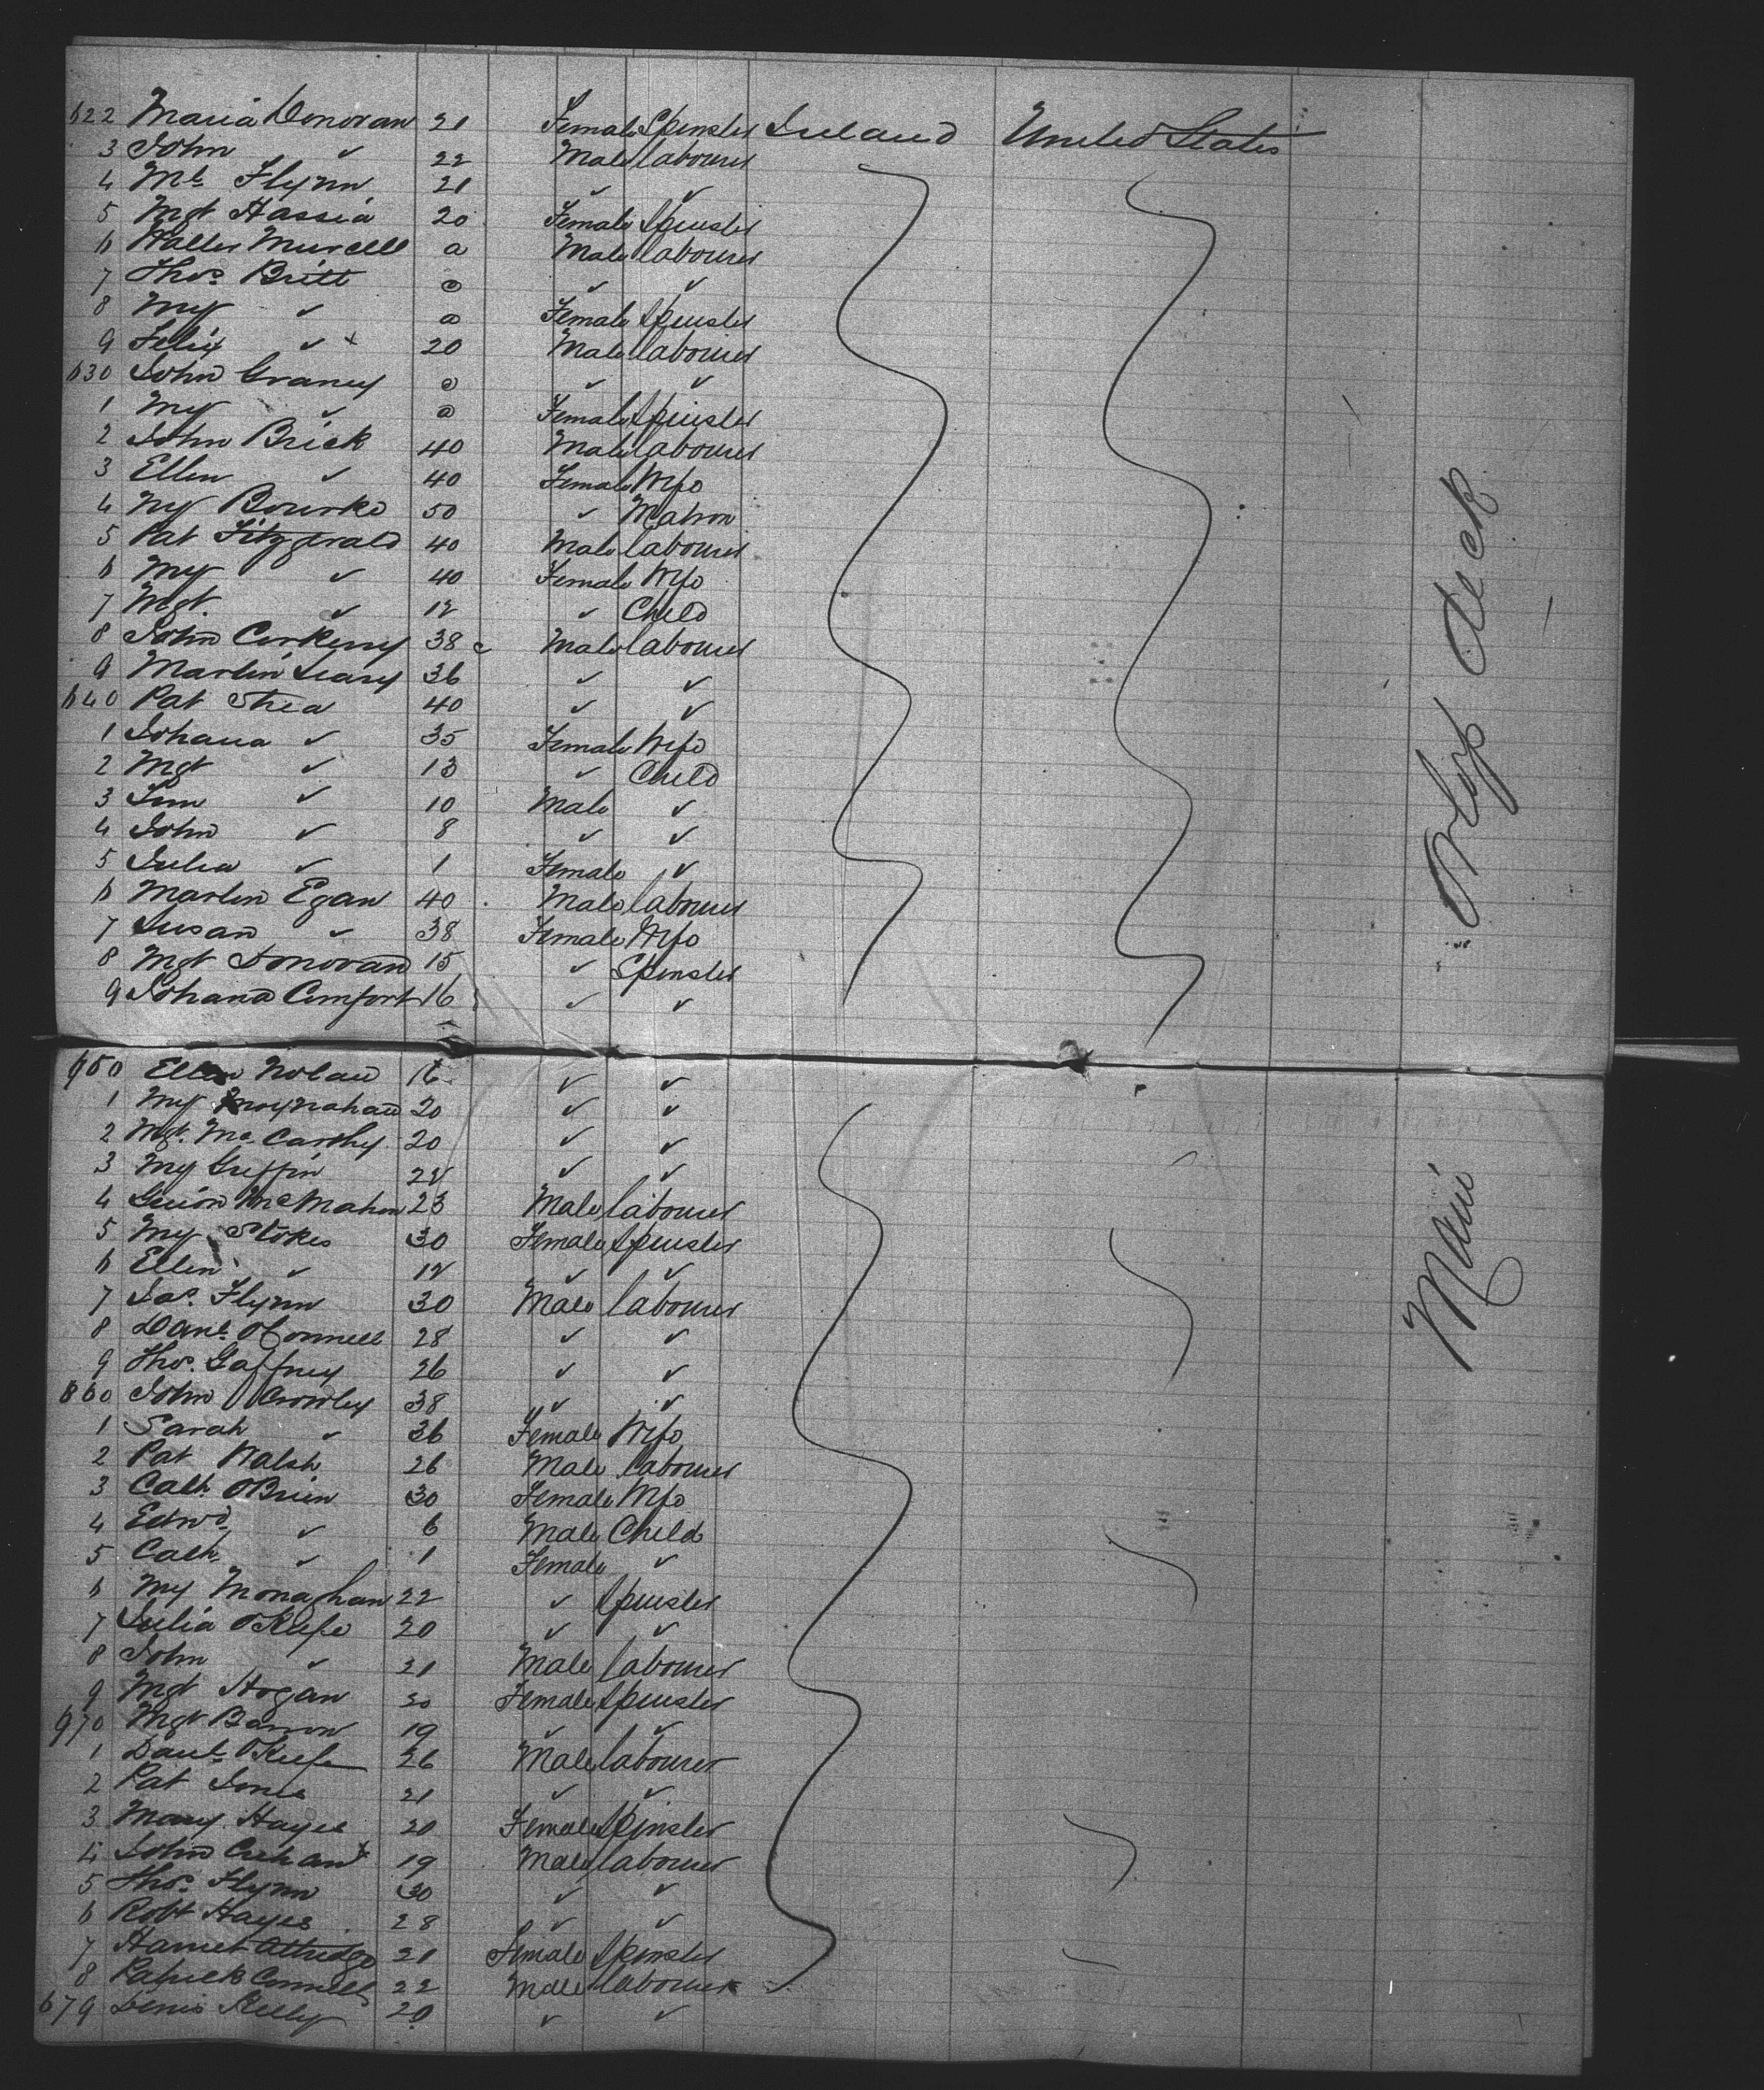 622 Maria Donovan 21 Female Spinster Ireland United States
3 John ✓ 22 Male labourer
4 Ml Flynn 21 ✓ ✓
5 Mgt Hassia 20 Female Spinster
6 Walter Murcell a Male labourer
7 Thos. Britt a ✓ ✓
8 My ✓ a Female Spinster
9 Felix ✓ x 20 Male labourer
630 John Graney a ✓ ✓
1 My ✓ a Female Spinster
2 John Brick 40 Male labourer
3 Ellen ✓ 40 Female Wife
4 My Bourke 50 ✓ Matron
5 Pat Fitzgerald 40 Male labourer
6 My ✓ 40 Female Wife
7 Mgt. ✓ 12 ✓ Child
8 John Corkerry 38 Male labourer
9 Martin Leary 36 ✓ ✓
640 Pat Shea 40 ✓ ✓
1 Johana ✓ 35 Female Wife
2 Mgt ✓ 13 ✓ Child
3 Tim ✓ 10 Male ✓
4 John ✓ 8 ✓ ✓
5 Julia ✓ 1 Female ✓
6 Martin Egan 40 Male labourer
7 Susan ✓ 38 Female Wife
8 Mgt Donovan 15 ✓ Spinster
9 Johana Comfort 16 ✓ ✓
Orlop deck
650 Ellen Nolan 16 ✓ ✓
1 My Moynahan 20 ✓ ✓
2 Mgt. McCarthy 20 ✓ ✓
3 My Griffin 22 ✓ ✓
4 Simon McMahon 23 Male labourer
5 My Stokes 30 Female Spinster
6 Ellen ✓ 12 ✓ ✓
7 Jas. Flynn 30 Male labourer
8 Danl. OConnell 28 ✓ ✓
9 Thos. Gaffney 26 ✓ ✓
660 John Crowley 38 ✓ ✓
1 Sarah ✓ 36 Female Wife
2 Pat Walsh 26 Male labourer
3 Cath. OBrien 30 Female Wife
4 Edwd. ✓ 6 Male Child
5 Cath. ✓ 1 Female ✓
6 My Monaghan 22 ✓ Spinster
7 Julia OKeefe 20 ✓ ✓
8 John ✓ 21 Male labourer
9 Mgt Hogan 20 Female Spinster
670 Mgt Barron 19 ✓ ✓
1 Danl. OKeefe 26 Male labourer
2 Pat Jones 21 ✓ ✓
3 Mary Hayes 20 Female Spinster
4 John x 19 Male labourer
5 Thos. Flynn 30 ✓ ✓
6 Robt Hayes 28 ✓ ✓
7 Harriet Attridge 21 Female Spinster
8 Patrick Connell 22 Male labourer
679 Denis Kelly 20 ✓ ✓
Main